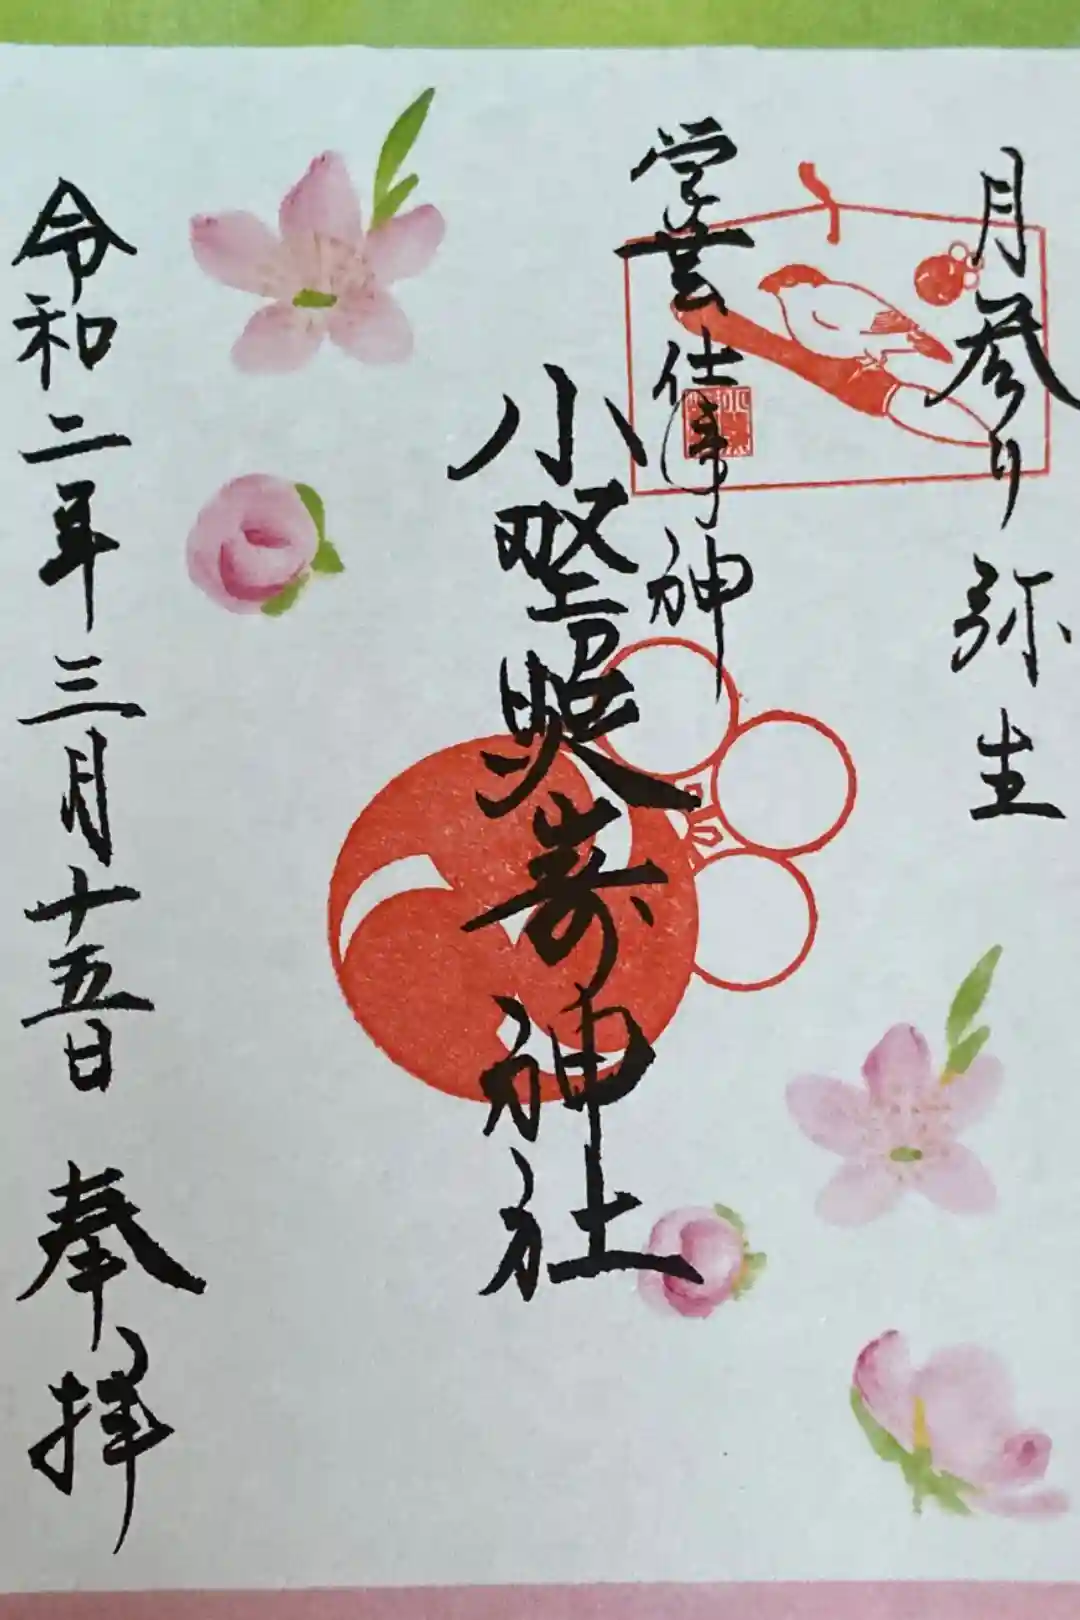 月参り 弥生
学芸 仕事 神
小野照崎神社
令和二年三月十五日 奉拝